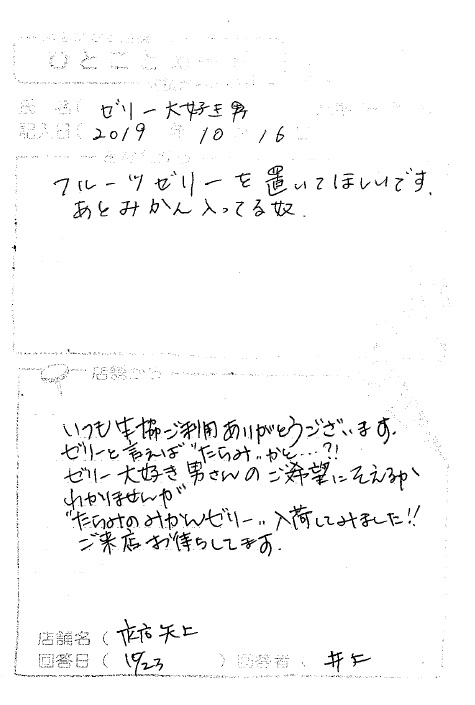 ひとことカード
氏 名( ゼリー大好き男
記入日( 2019 年 10 16
フルーツゼリーを置いてほしいです.
あとみかん入ってる奴.
店舗から
いつも生協ご利用ありがとうございます.
ゼリーと言えば"たらみ"かと…?!
ゼリー大好き男さんのご希望にそえるか
わかりませんが
"たらみのみかんゼリー"入荷してみました!!
ご来店お待ちしてます.
店舗名( 矢上
回答日( 10/23 ) 回答者( 井上